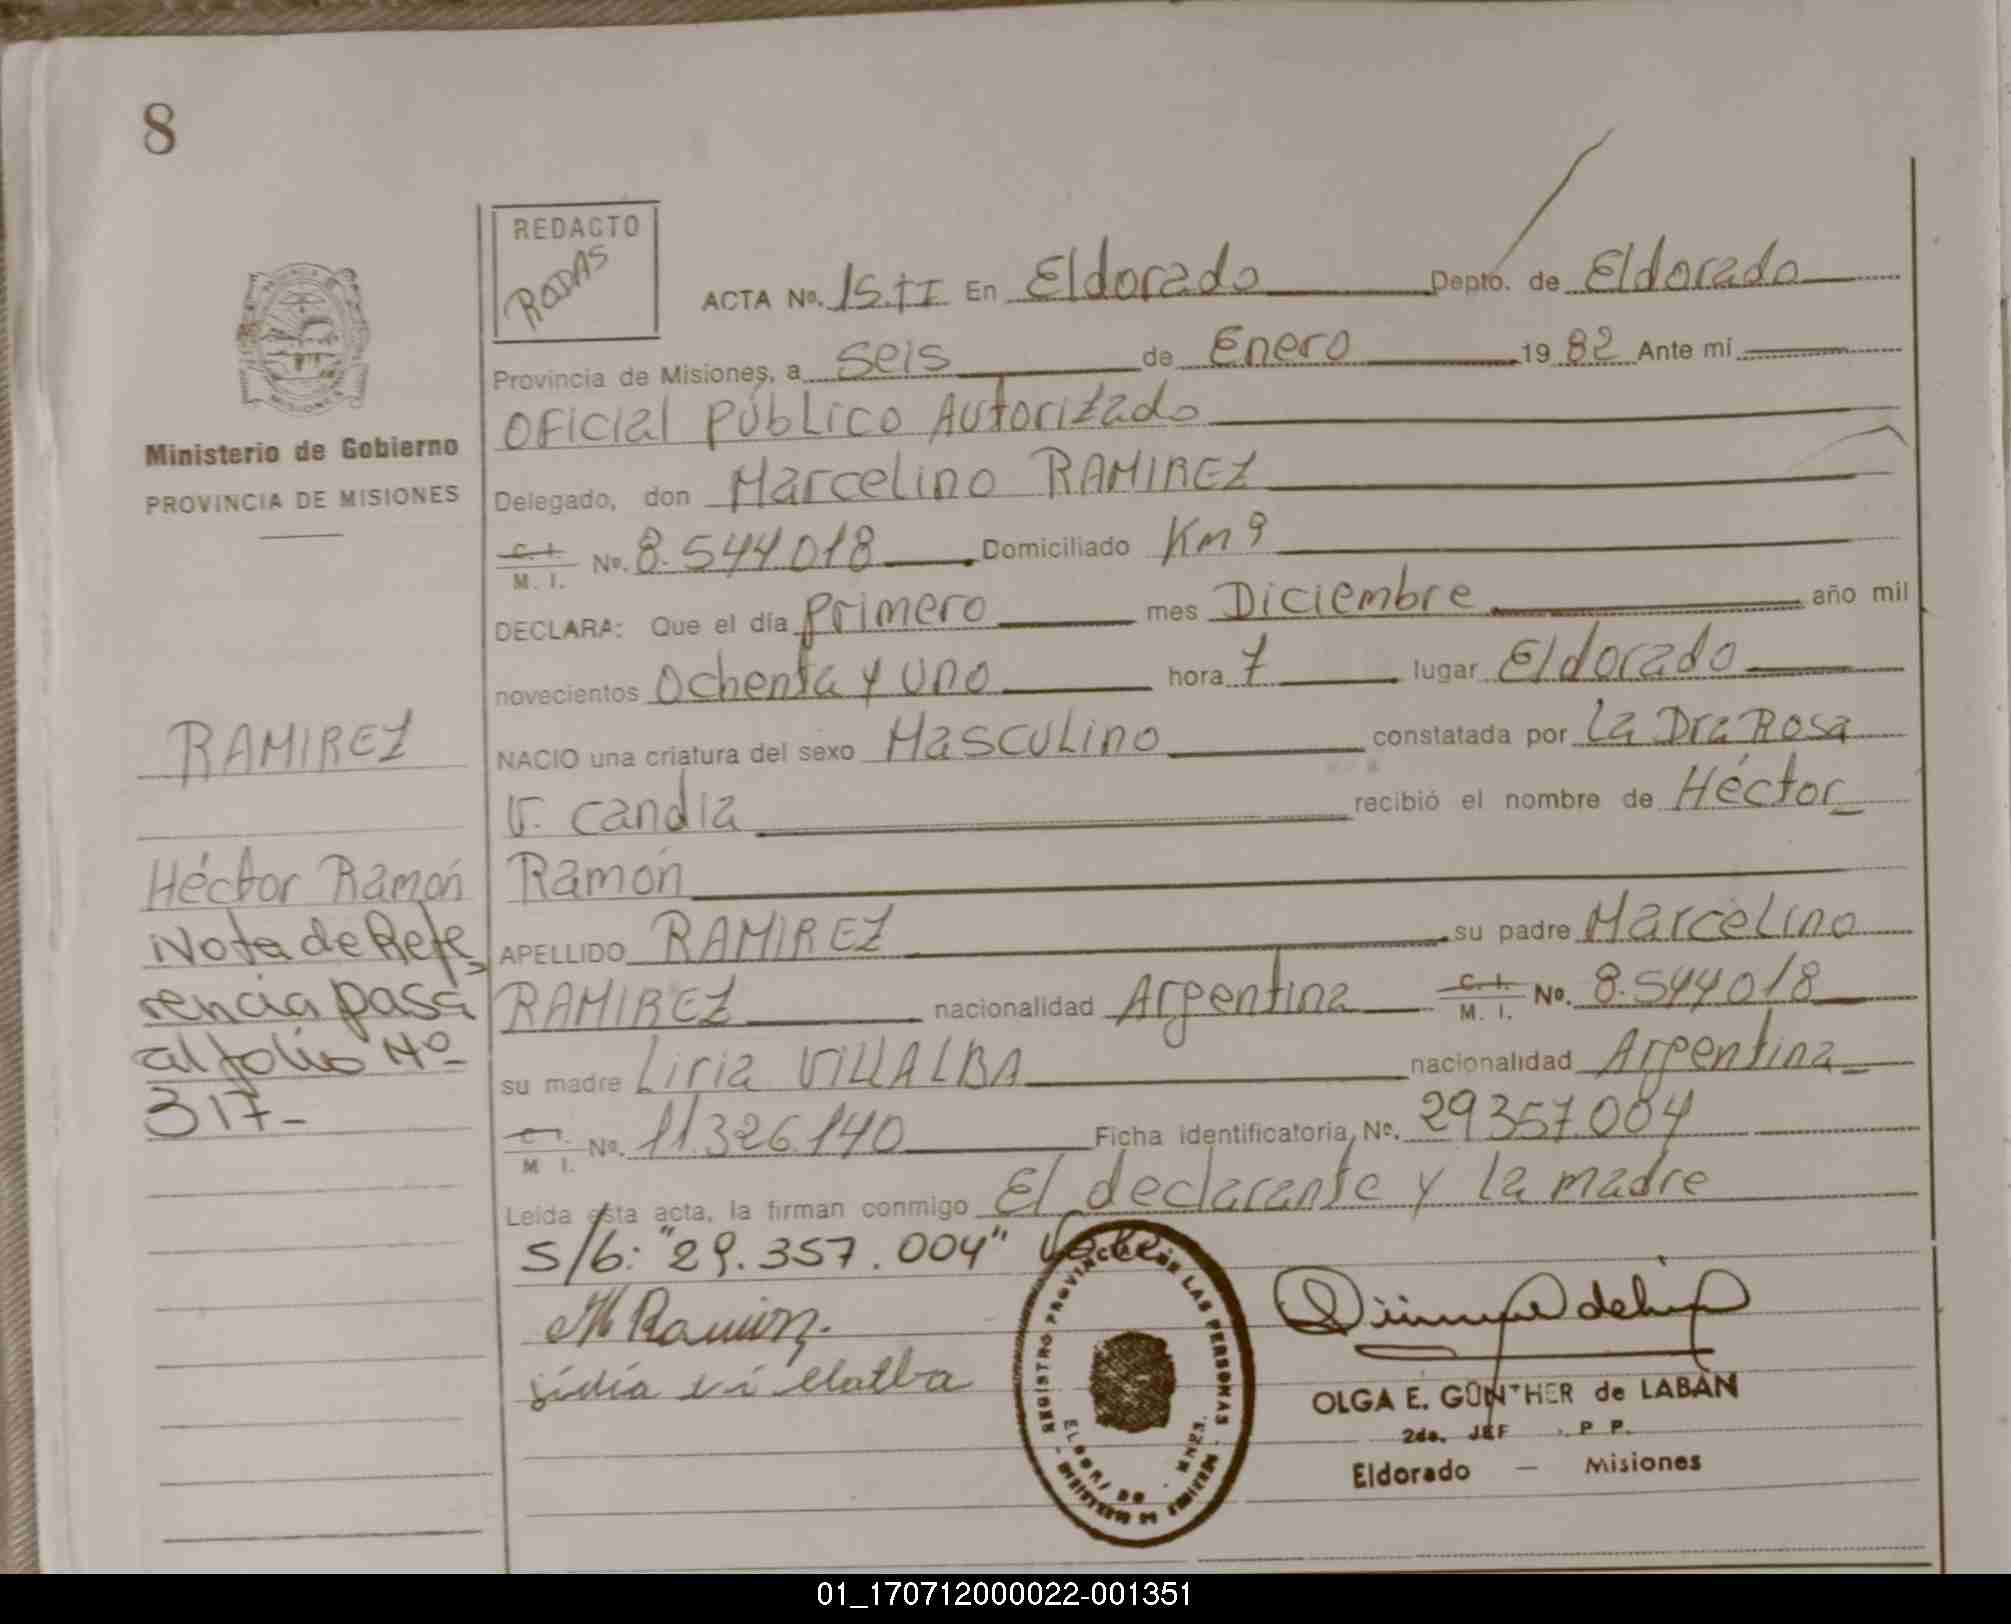 8
REDACTO
RODAS
ACTA Nº. 15.tI En Eldorado Depto. de Eldorado
Provincia de Misiones, a seis de Enero 1982 Ante mí
Oficial Público Autorizado
Ministerio de Gobierno
PROVINCIA DE MISIONES
Delegado, don Marcelino RAMIREZ
C. I.
M. I. Nº. 8.544018 Domiciliado Km 9
DECLARA: Que el día primero mes Diciembre año mil
novecientos Ochenta y uno hora 7 lugar Eldorado
RAMIREZ
NACIO una criatura del sexo Masculino constatada por la Dra Rosa
V. candia recibió el nombre de Héctor
Héctor Ramón
Ramón
Nota de Refe
rencia pasa
al folio Nº
317-
APELLIDO RAMIREZ su padre Marcelino
RAMIREZ nacionalidad Argentina C. I.
M. I. Nº. 8.544018
su madre Liria VILLALBA nacionalidad Argentina
C. I.
M I. Nº. 11.326.140 Ficha identificatoria, Nº. 29357.004
Leída esta acta, la firman conmigo El declarante y la madre
S/b: "29.357.004" Vale
M Ramirez.
lidia villalba
REGISTRO PROVINCIAL DE LAS PERSONAS
ELDORADO - MNES.
OLGA E. GÜNTHER de LABAN
2da. JEF P P.
Eldorado — Misiones
01_170712000022-001351